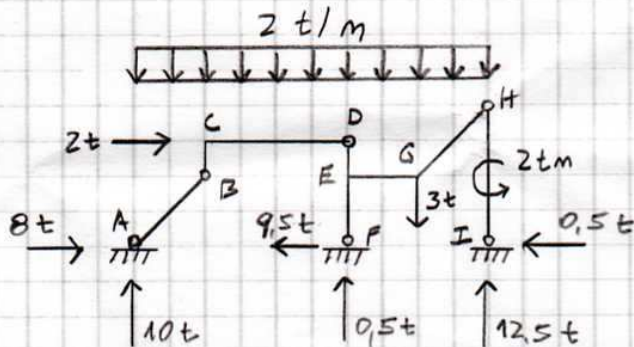 2 t/m
2t
C
D
H
E
G
2tm
B
3t
8t
A
9,5t
F
I
0,5t
10t
0,5t
12,5t